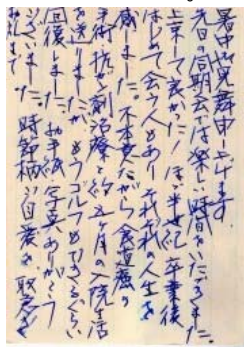 暑中お見舞申し上げます。
先日の同期会では楽しい時間をいただきました。
上京して良かった! ほぼ半世紀 卒業後
はじめて会う人もあり それぞれの人生を
感じました。不本意ながら食道癌の
手術・抗がん剤治療と約五ヶ月の入院生活
を送りましたが もうゴルフもできるくらい
回復しました。お手紙 写真ありがとう
ございました。時節柄ご自愛を
お礼まで